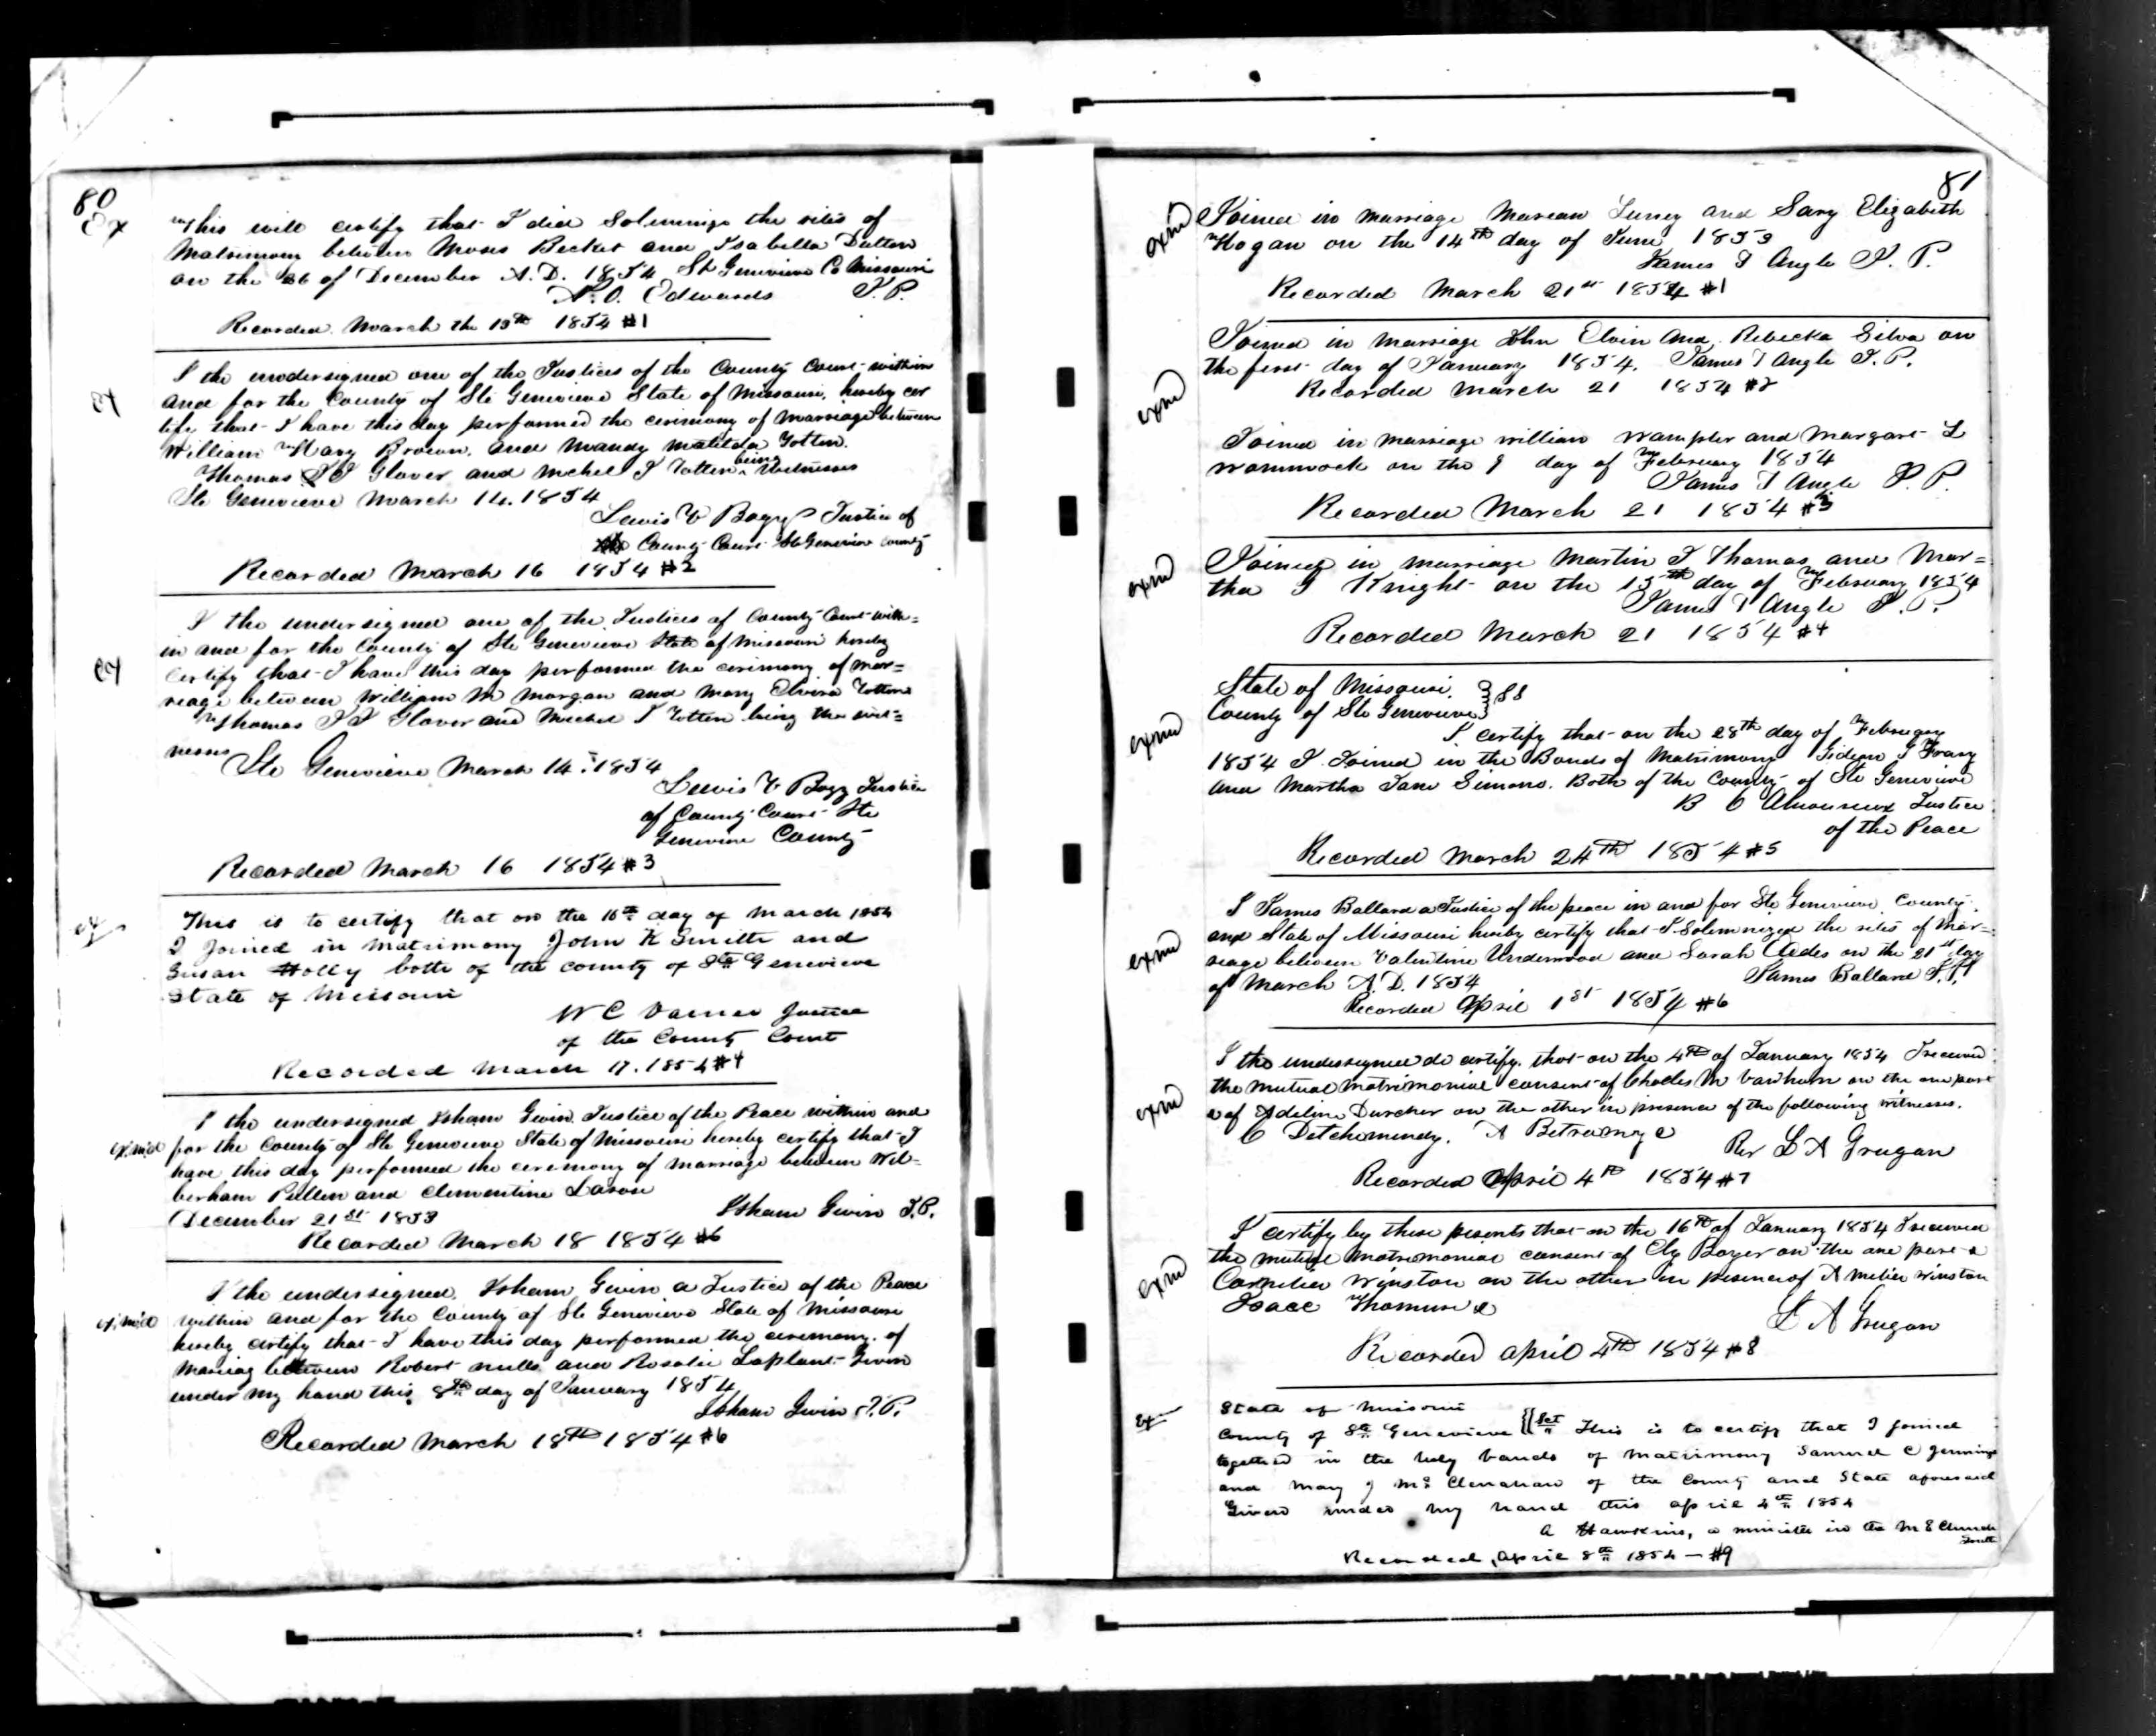 80
Ex
This will certify that I did Solemnize the rites of
Matrimony between Moses Becket and Isabella Dutton
on the 26 of December A.D. 1854 St Genevieve Co Missouri
N. O. Edwards J.P.
Recorded March the 15th 1854 #1
Ex
I the undersigned one of the Justices of the County Court within
and for the County of Ste Genevieve State of Missouri, hereby cer
tify that I have this day performed the cerimony of marriage between
William Hary Brown, and Mandy Matilda Totten.
Thomas J J Glover and Michel J Totten being Witnesses
Ste Genevieve March 14. 1854
Lewis V Bogy Justice of
County Court Ste Genevieve County
Recorded March 16 1854 #2
Ex
I the undersigned one of the Justices of County Court with=
in and for the County of Ste Genevieve State of Missouri hereby
Certify that I have this day performed the cerimony of mar=
reage between William M Morgan and Mary Elvira Totten
Thomas J J Glover and Michel J Totten being the wit=
nesses
Ste Genevieve March 14th 1854
Lewis V Bogy Justice
of County Court Ste
Genevieve County
Recorded March 16 1854 #3
Ex
This is to certify that on the 16th day of March 1854
I Joined in matrimony John K Smith and
Susan Holly both of the county of Ste Genevieve
State of Missouri
W C Varner Justice
of the County Court
Recorded March 17. 1854 #4
exmd
I the undersigned Isham Givin Justice of the Peace within and
for the County of Ste Genevieve State of Missouri hereby certify that I
have this day performed the ceremony of marriage between Wil=
berham Pullen and Clementine Larose
December 21st 1853
Isham Givin J.P.
Recorded March 18 1854 #6
exmd
I the undersigned, Isham Givin a Justice of the Peace
within and for the County of Ste Genevieve State of Missouri
hereby certify that I have this day performed the ceremony of
Marriag between Robert Mills and Rosalie Laplant Given
under my hand this 8th day of January 1854
Isham Givin J.P.
Recorded March 18th 1854 #6
81
exmd
Joined in marriage Marean Turney and Sary Elizabeth
Hogan on the 14th day of June 1853
James T Angle J. P.
Recorded March 21st 1854 #1
exmd
Joined in marriage John Elvin and Rebecka Silva on
the first day of January 1854. James T Angle J.P.
Recorded March 21 1854 #2
Joined in marriage William Wampler and Margaret L
Wommock on the 9 day of February 1854
James T Angle J. P.
Recorded March 21 1854 #3
exmd
Joined in marriage Martin J Thomas and Mar=
tha J Knight on the 15th day of February 1854
James T Angle J. P.
Recorded March 21 1854 #4
exmd
State of Missouri
County of Ste Genevieve } SS
I certify that on the 28th day of February
1854 I Joined in the Bonds of Matrimony Gideon J Frary
and Martha Jane Simons. Both of the County of Ste Genevieve
B C Amoureux Justice
of the Peace
Recorded March 24th 1854 #5
exmd
I James Ballard a Justice of the peace in and for Ste Genevieve County
and State of Missouri hereby certify that I Solemnized the rites of Mar=
reage between Valentine Underwood and Sarah Aedes on the 21st day
of March A.D. 1854
James Ballard J.P.
Recorded April 1st 1854 #6
exmd
I the undersigned do certify. that on the 4th of January 1854 I received
the mutual matrimonial consent of Charles M Vanhurn on the one part
& of Adeline Durcher on the other in presence of the following witnesses.
C Detchemendy. A
Rev L A Grugan
Recorded April 4th 1854 #7
exmd
I certify by these presents that on the 16th of January 1854 I received
the mutual matrimonial consent of Ely Boyer on the one part &
Cornelia Winston on the other in presence of Amelia Winston
Isaac Thomure &
L A Grugan
Recorded April 4th 1854 #8
Ex
State of Missouri
County of Ste Genevieve {{ Sct This is to certify that I joined
together in the holy bands of matrimony Samuel C Jennings
and Mary J Mc Clenahan of the County and State aforesaid
Given under my hand this april 4th 1854
A Hawkins, a minister in the M E Church
South
Recorded, April 8th 1854 — #9